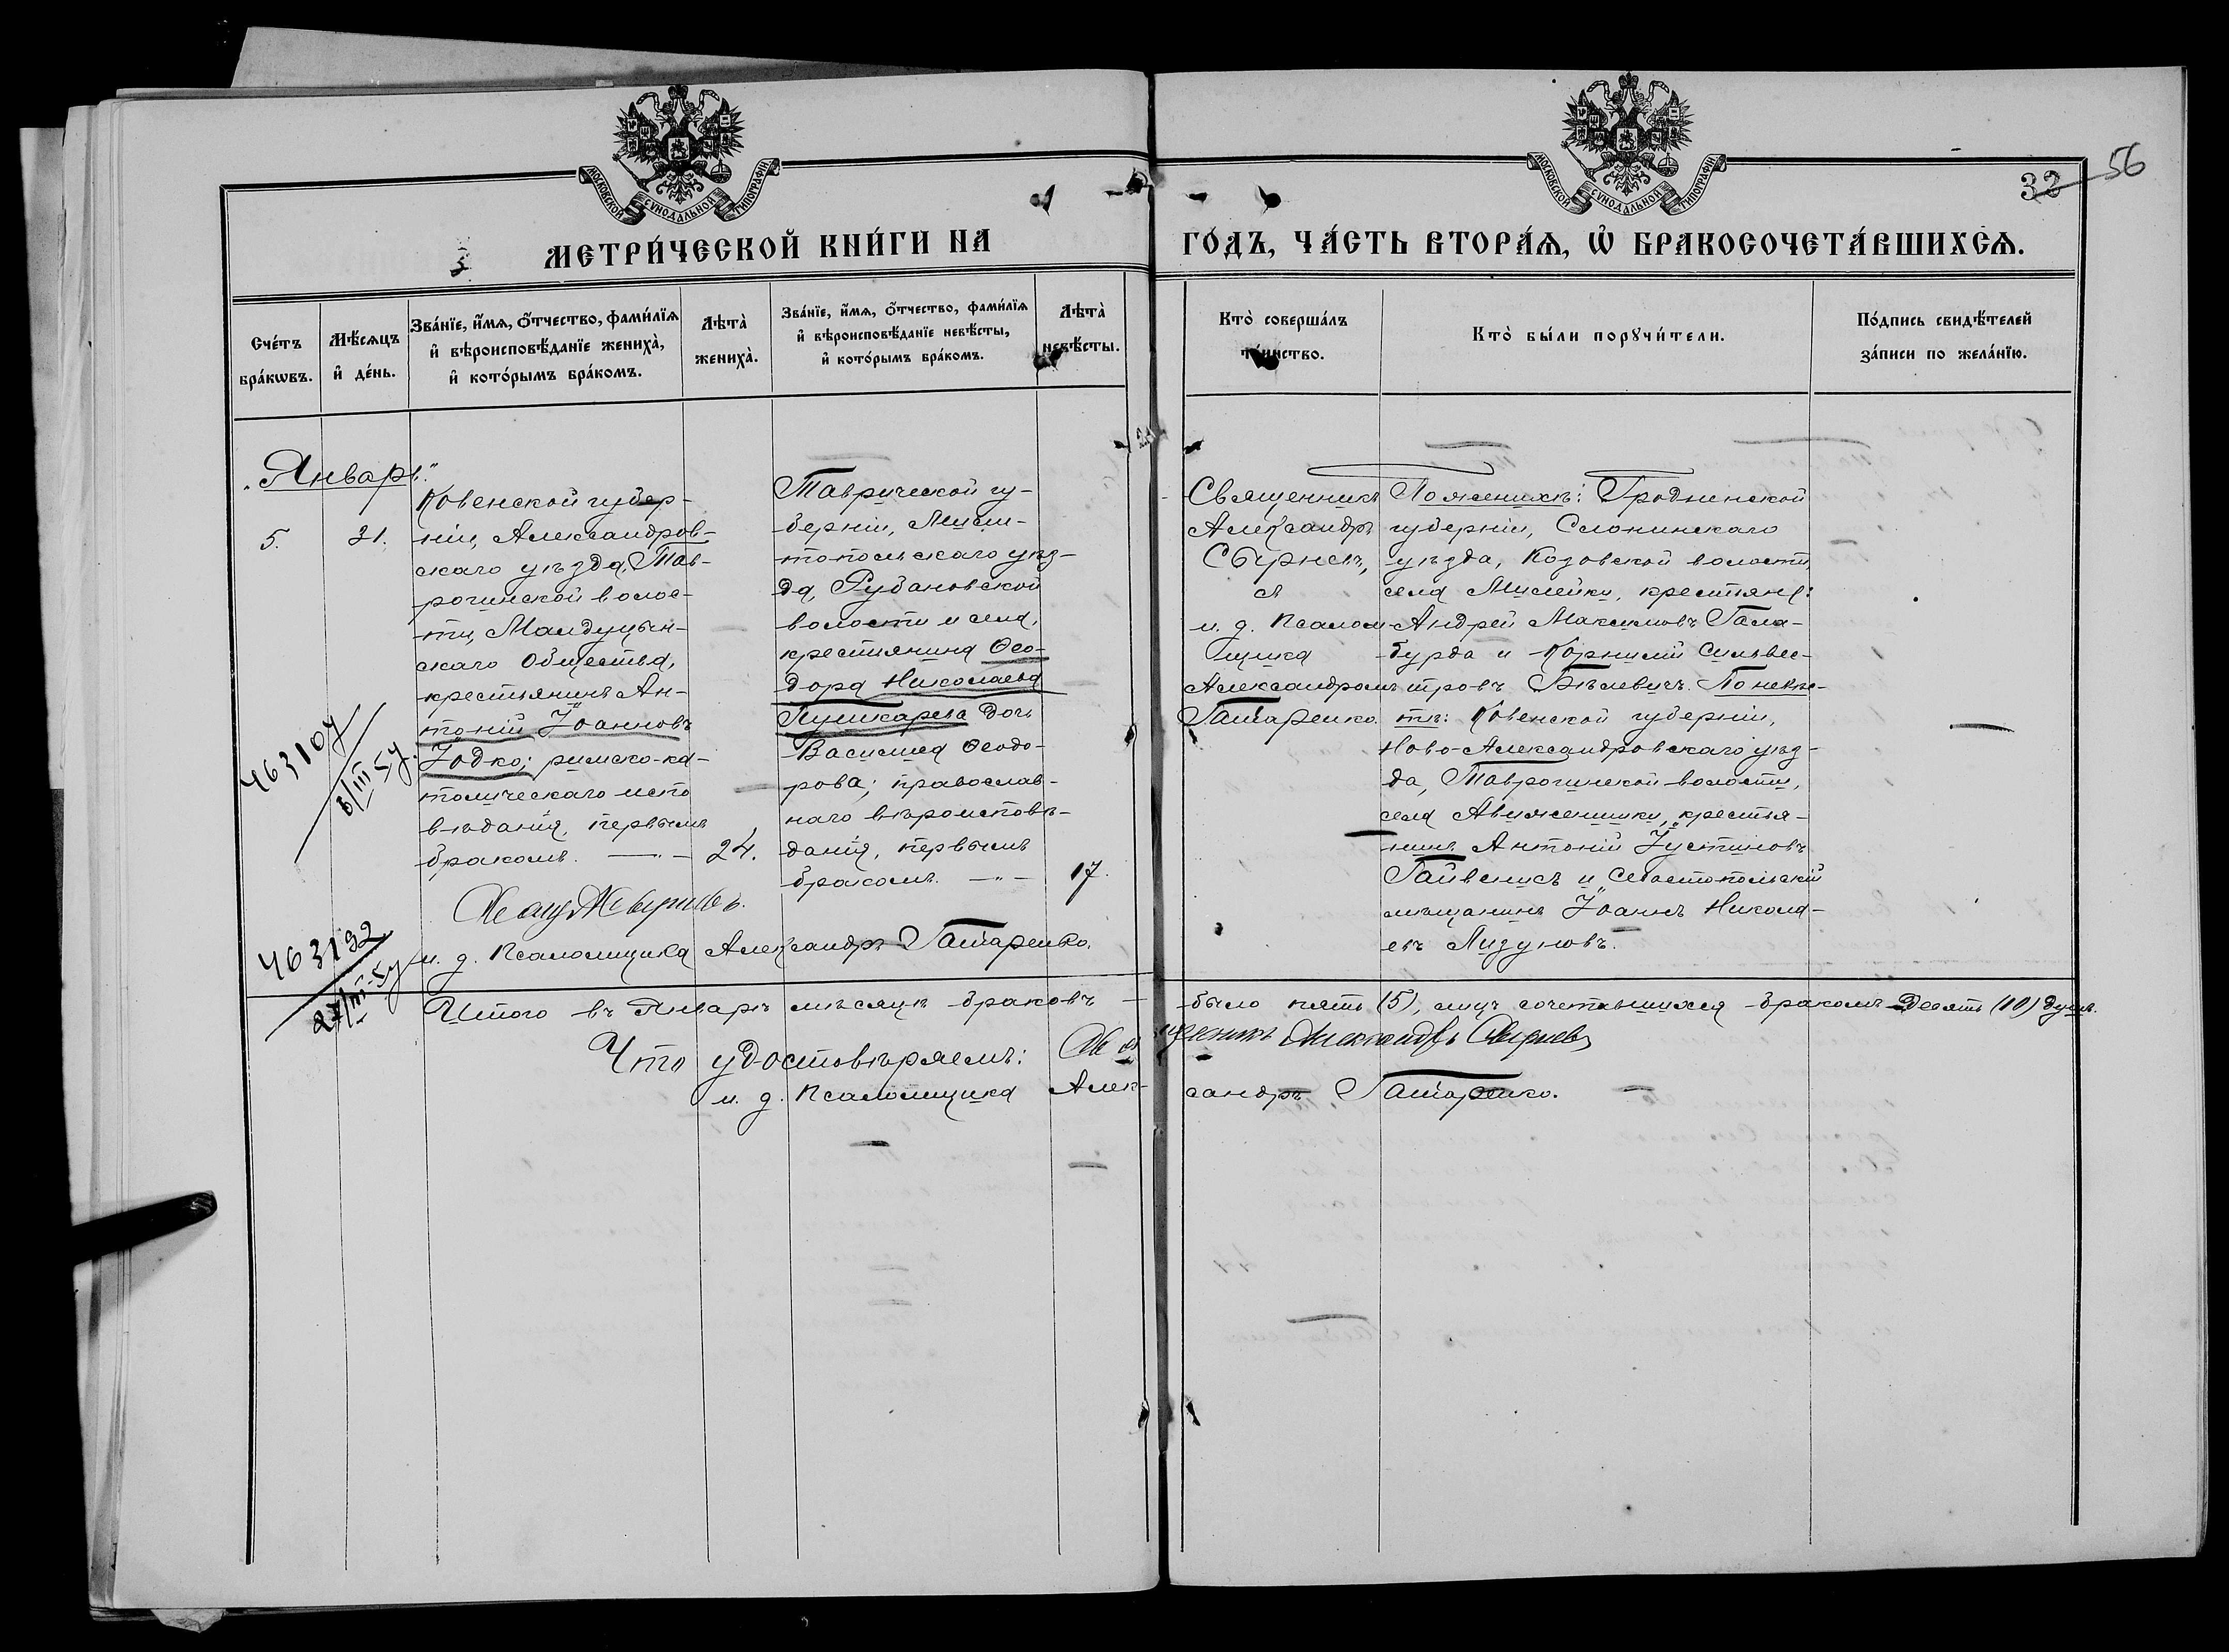 МОСКОВСКОЙ СУНОДАЛЬНОЙ ТИПОГРАФІИ
МОСКОВСКОЙ СУНОДАЛЬНОЙ ТИПОГРАФІИ
32 56
МЕТРИ́ЧЕСКОЙ КНИ́ГИ НА
ГО́ДЪ, ЧА́СТЬ ВТОРА́Ѧ, Ѽ БРАКОСОЧЕТА́ВШИХСѦ.
Сче́тъ
бра́кѡвъ.
Мѣ́сѧцъ
и҆ де́нь.
Зва́нїе, и҆́мѧ, ѻ҆́тчество, фами́лїѧ
и҆ вѣроисповѣ́данїе жениха̀,
и҆ кото́рымъ бра́комъ.
Лѣта̀
жениха̀.
Зва́нїе, и҆́мѧ, ѻ҆́тчество, фами́лїѧ
и҆ вѣроисповѣ́данїе невѣ́сты,
и҆ кото́рымъ бра́комъ.
Лѣта̀
невѣ́сты.
Кто̀ соверша́лъ
та́инство.
Кто̀ бы́ли порꙋчи́тели.
По́дпись свидѣ́телей
за́писи по жела́нїю.
„Январь“
5.
21.
Ковенской губер-
ніи, Александров-
скаго уѣзда, Тав-
рогинской волос-
ти, Малдуцын-
скаго Общества,
крестьянинъ Ан-
тоній Іоанновъ
Іодко; римско-ка-
толическаго испо
вѣданія, первымъ
бракомъ. —"—
24.
Таврической гу-
берніи, Мели-
топольскаго уѣз-
да, Рубановской
волости и села,
крестьянина Ѳео-
дора Николаева
Пушкарева дочь
Василиса Ѳеодо-
рова; православ-
наго вѣроисповѣ-
данія, первымъ
бракомъ. —"—
17.
Священникъ
Александръ
Сбырневъ,
съ
и. д. Псалом
щика
Александромъ
Гатаренко.
По женихѣ: Гродненской
губерніи, Слонимскаго
уѣзда, Козовской волости,
села Милейки, крестьяне:
Андрей Максимовъ Гала-
бурда и Корнилій Сильвес-
тровъ Бѣлевичъ. По невѣс-
тѣ: Ковенской губерніи,
Ново-Александровскаго уѣз-
да, Таврогинской волости,
села Авиженишки, крестья-
нинъ Антоній Іустиновъ
Гайвенисъ и Севастопольскій
мѣщанинъ Іоаннъ Никола-
евъ Лизуновъ.
463107
8/III 57.
463192
27/III-57
и. д. Псаломщика Александръ Гатаренко.
Итого въ Январѣ мѣсяцѣ браковъ — было пять (5), лицъ сочетавшихся бракомъ Десять (10) душъ.
Что удостовѣряемъ: Священникъ Александръ Сбырневъ
и. д. Псаломщика Александръ Гатаренко.